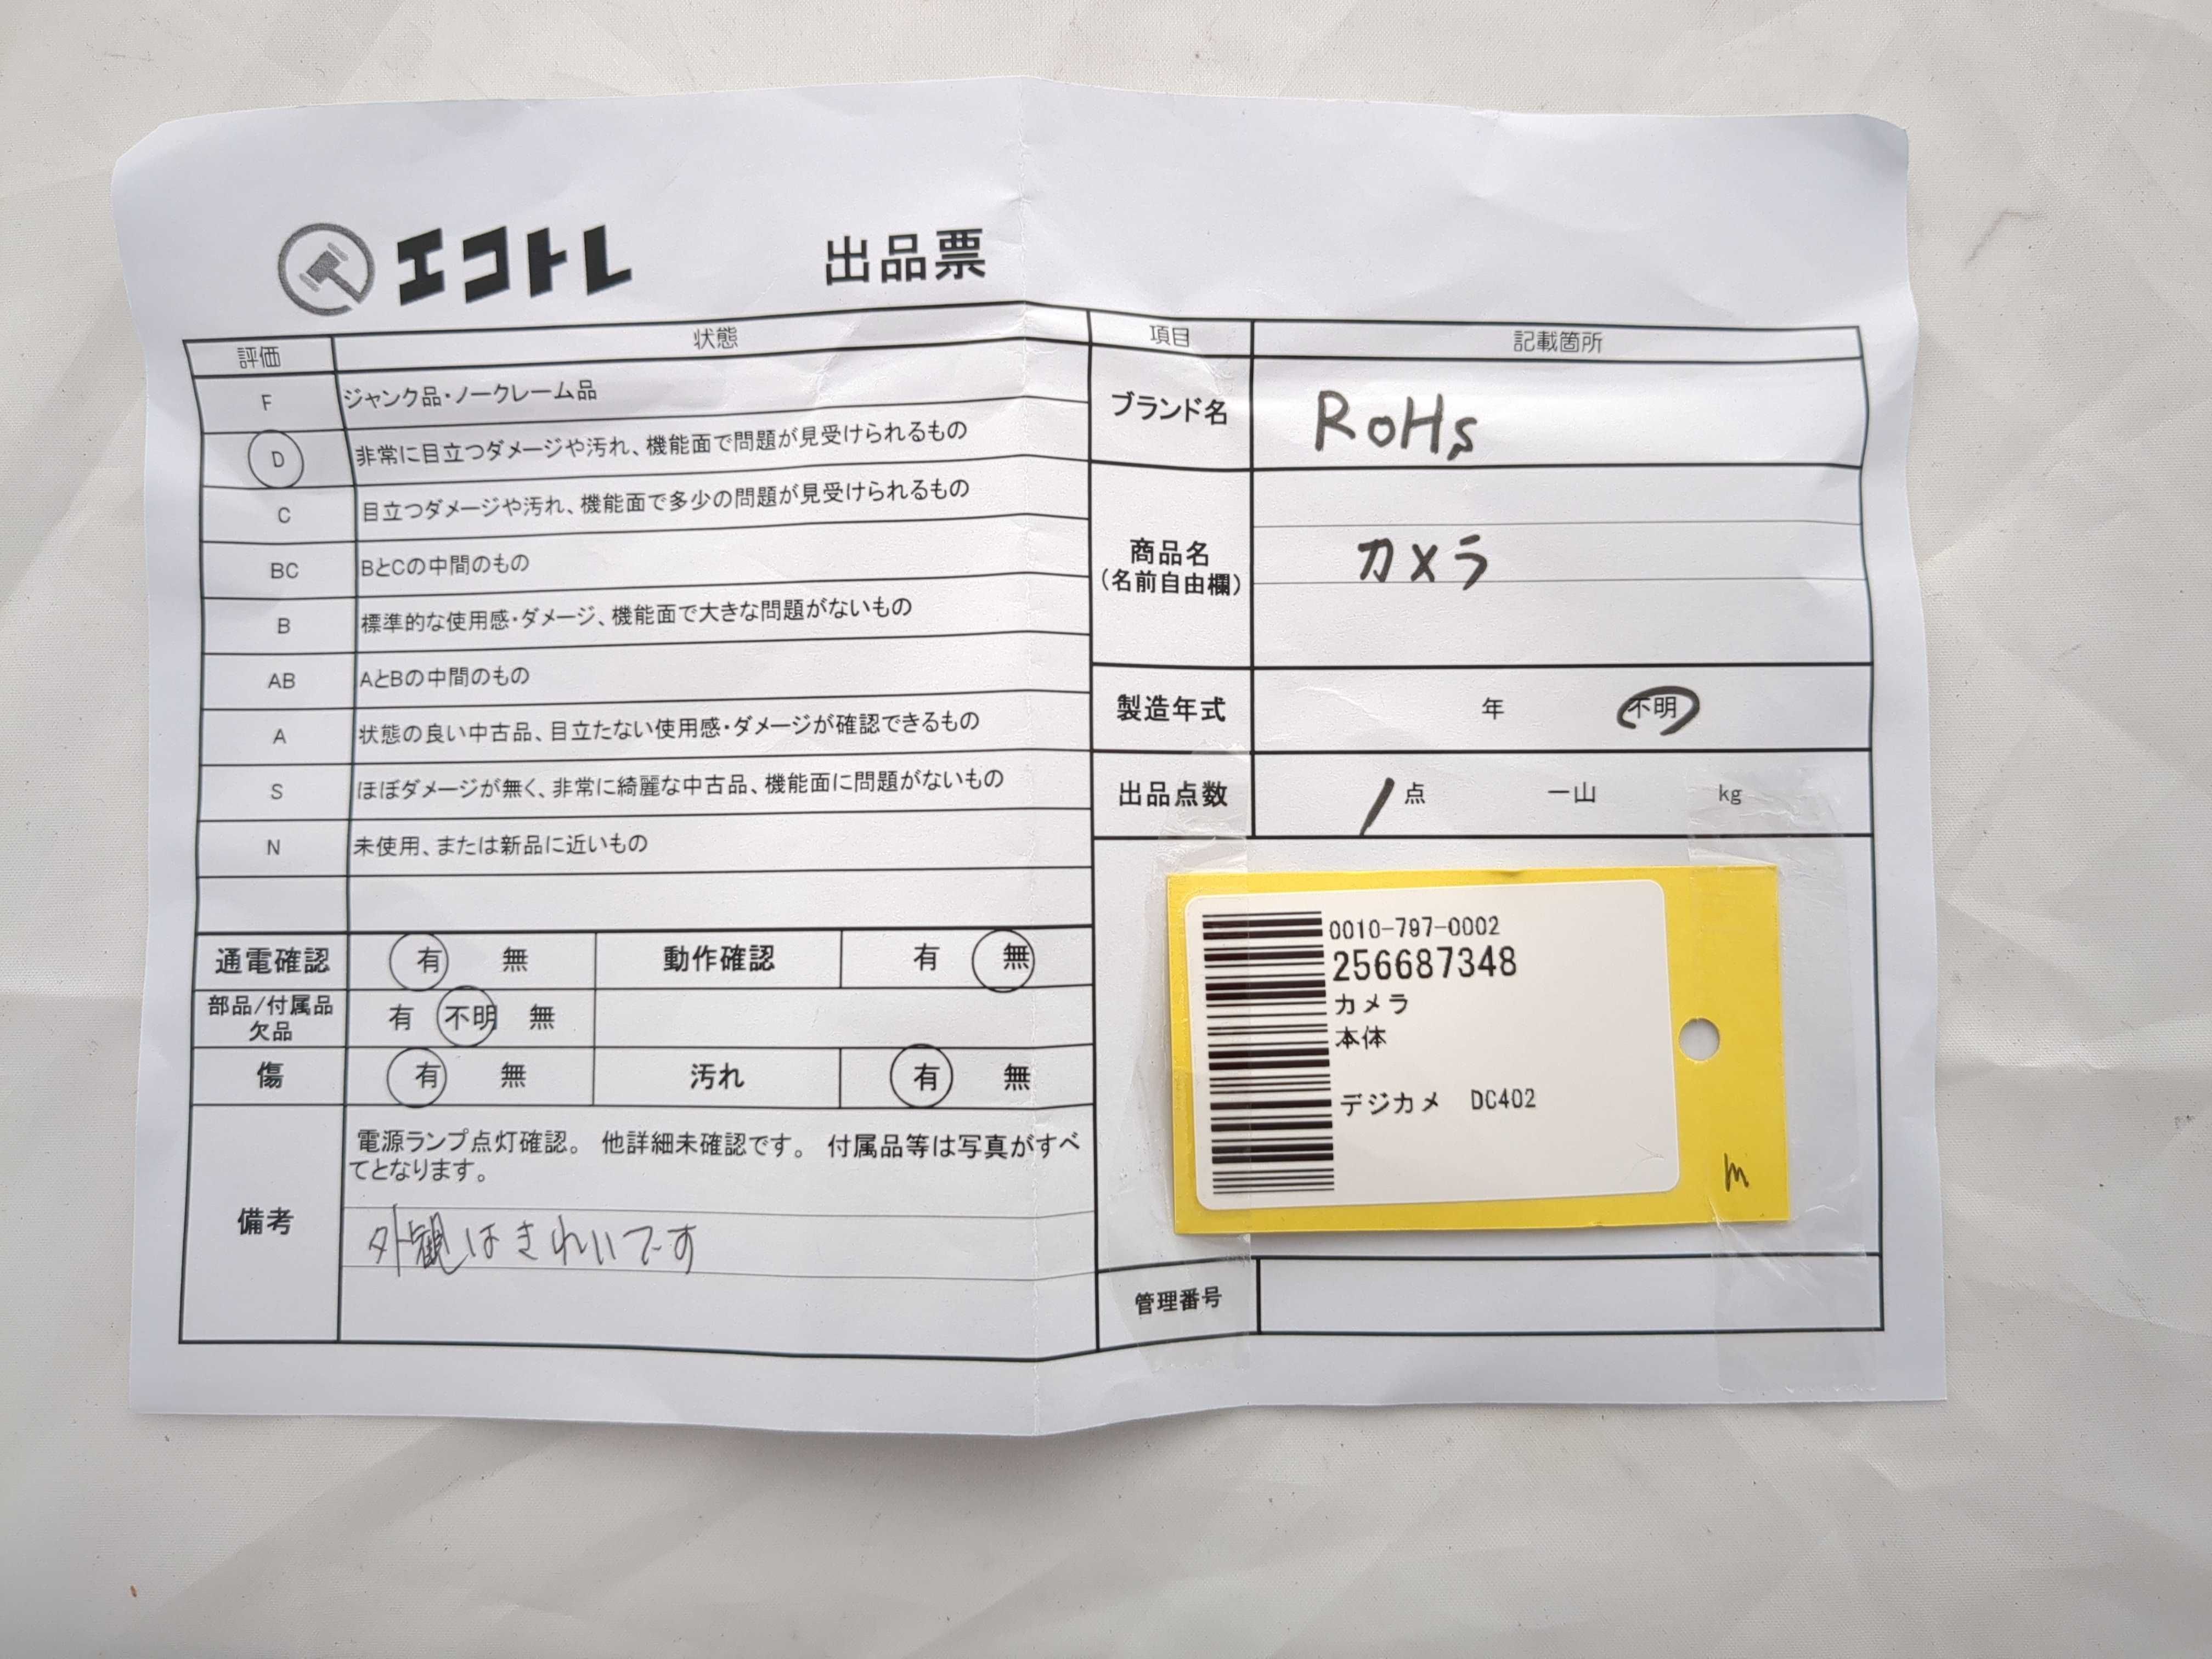 エコトレ
出品票
評価 状態
F ジャンク品・ノークレーム品
D 非常に目立つダメージや汚れ、機能面で問題が見受けられるもの
C 目立つダメージや汚れ、機能面で多少の問題が見受けられるもの
BC BとCの中間のもの
B 標準的な使用感・ダメージ、機能面で大きな問題がないもの
AB AとBの中間のもの
A 状態の良い中古品、目立たない使用感・ダメージが確認できるもの
S ほぼダメージが無く、非常に綺麗な中古品、機能面に問題がないもの
N 未使用、または新品に近いもの
通電確認 有 無 動作確認 有 無
部品/付属品
欠品
有 不明 無
傷 有 無 汚れ 有 無
備考
電源ランプ点灯確認。 他詳細未確認です。 付属品等は写真がすべ
てとなります。
外観はきれいです
項目 記載箇所
ブランド名 RoHs
商品名
(名前自由欄)
カメラ
製造年式 年 不明
出品点数 1点 一山 kg
0010-797-0002
256687348
カメラ
本体
デジカメ DC402
m
管理番号